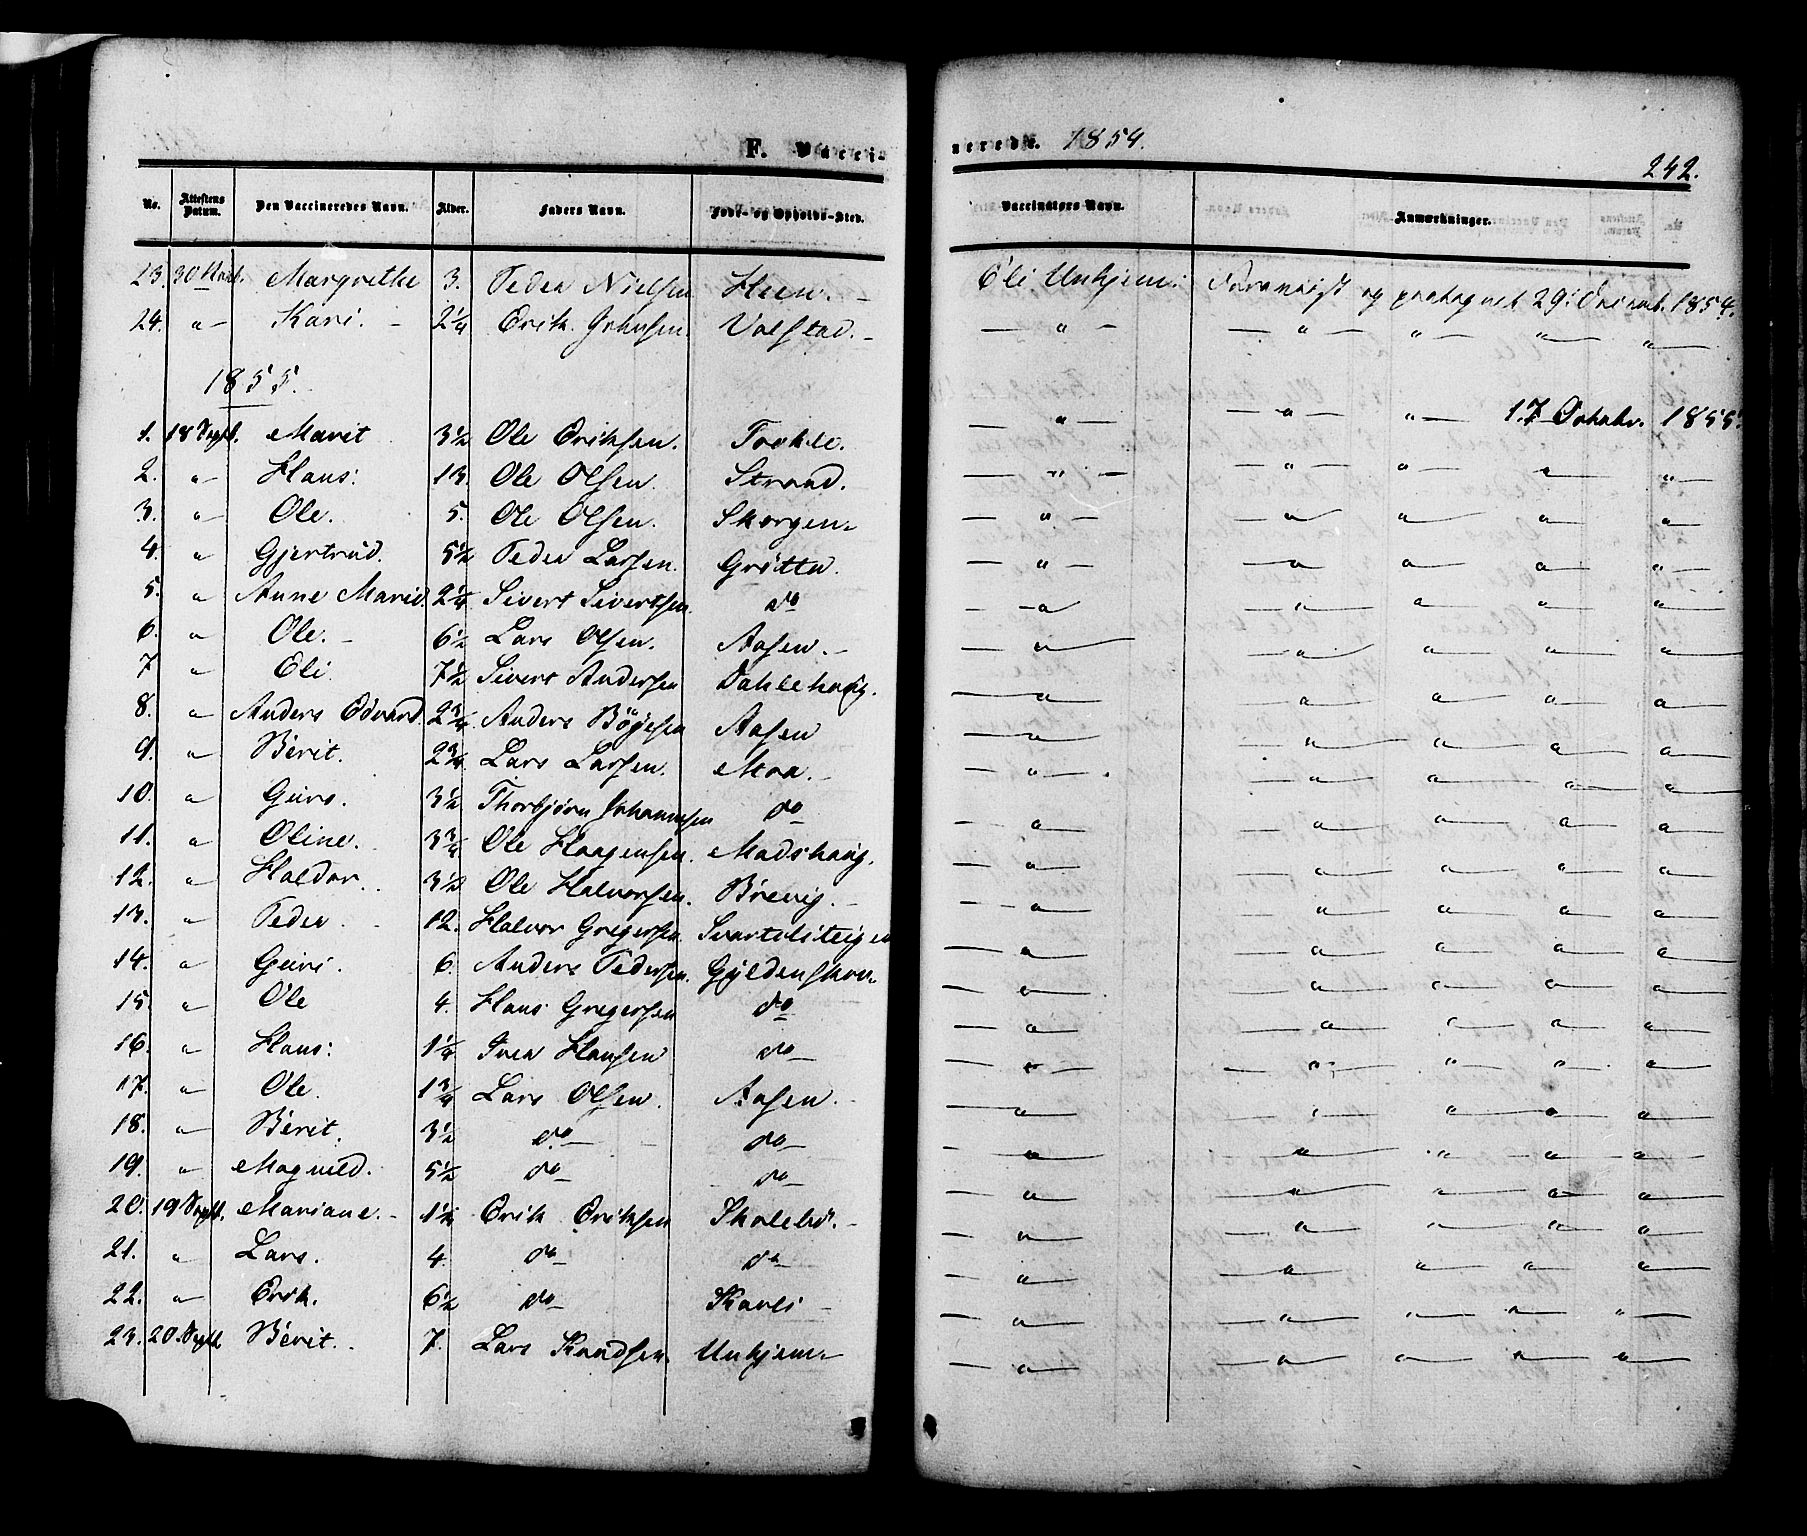 F. Vaccinerede. 1854.
242.
No. Attestens Datum. Den Vaccineredes Navn. Alder. Faders Navn. Føde- og Opholds-Sted. Vaccinatørs Navn. Anmærkninger.
23. 30 Margrethe 3. Peder Nielsen Heen. – Eli Unhjem: og 29: 1854.
24. " – Kari. – 2 1/4 Erik Johnsen. Volstad. – – " – – " – " – " – " –
1855.
1. 18 Septb. Marit 3 1/2 Ole Eriksen. Tokle. " – – " – " – 17 Octobr. 1855.
2. " – Hans: 13. Ole Olsen. Strand. – " – – " – " – " – " –
3. " – Ole. 5. Ole Olsen. Skorgen. – " – – " – " – " – " –
4. " Gjertrud. 5 1/2 Peder Larsen. Grötta. – " – – " – " – " – " –
5. " Anne Marie. 2 1/4 Sivert Sivertsen. do – " – – " – " – " – " –
6. " – Ole. – 6 1/2 Lars Olsen. Aasen. – – " – – " – " – " – " –
7 " – Eli 7 1/2 Sivert Andersen Dahlehaug. – " – – " – " – " – " –
8. " – Anders Edvard. 2 3/4 Anders Böjesen Aasen – " – – " – " – " – " –
9. " – Berit. 2 3/4 Lars Larsen. Moa. – – " – – " – " – " – " –
10. " – Guro. 3 1/2 Thorbjörn Johannesen do – " – – " – " – " – " –
11. " Oline. 3 3/4 Ole Haagensen. Madshaug. – " – – " – " – " – " –
12. " – Haldor. 3 1/2 Ole Halvorsen. Brevig. – – " – – " – " – " – " –
13. " – Peder 12. Halvor Gregersen. – " – – " – " – " – " –
14. " – Guri. 6. Anders Pedersen. Gyldenskov – " – – " – " – " – " –
15. " – Ole 4. Hans Gregersen do – " – – " – " – " – " –
16. " – Hans: 1 1/4 Iver Hansen do – – " – – " – " – " – " –
17. " – Ole. 1 3/4 Lars Olsen. Aasen. – – " – – " – " – " – " –
18. " – Berit. 3 1/2 do – do – – " – – " – " – " – " –
19. " – Magnild. 5 1/2 do – do – – " – – " – " – " – " –
20. 19 Septb. Mariane. – 1 1/2 Erik Eriksen – " – – " – " – " – " –
21. " – Lars. 4. do – do – – " – – " – " – " – " –
22. " – Erik. 6 1/2 do – Kavli – – " – – " – " – " – " –
23. 20. Septb. Berit. 7. Lars Knudsen. Unhjem – " – – " – " – " – " –